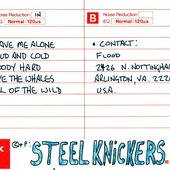 Noise Reduction IN
EQ Normal: 120µs
B Noise Reduction
EQ Normal: 120µs
AVE ME ALONE
UD AND COLD
ODY HARD
E THE WHALES
L OF THE WILD
• CONTACT:
FLOOD
2426 N. NOTTINGHAM
ARLINGTON, VA. 222
U.S.A.
STEEL KNICKERS.